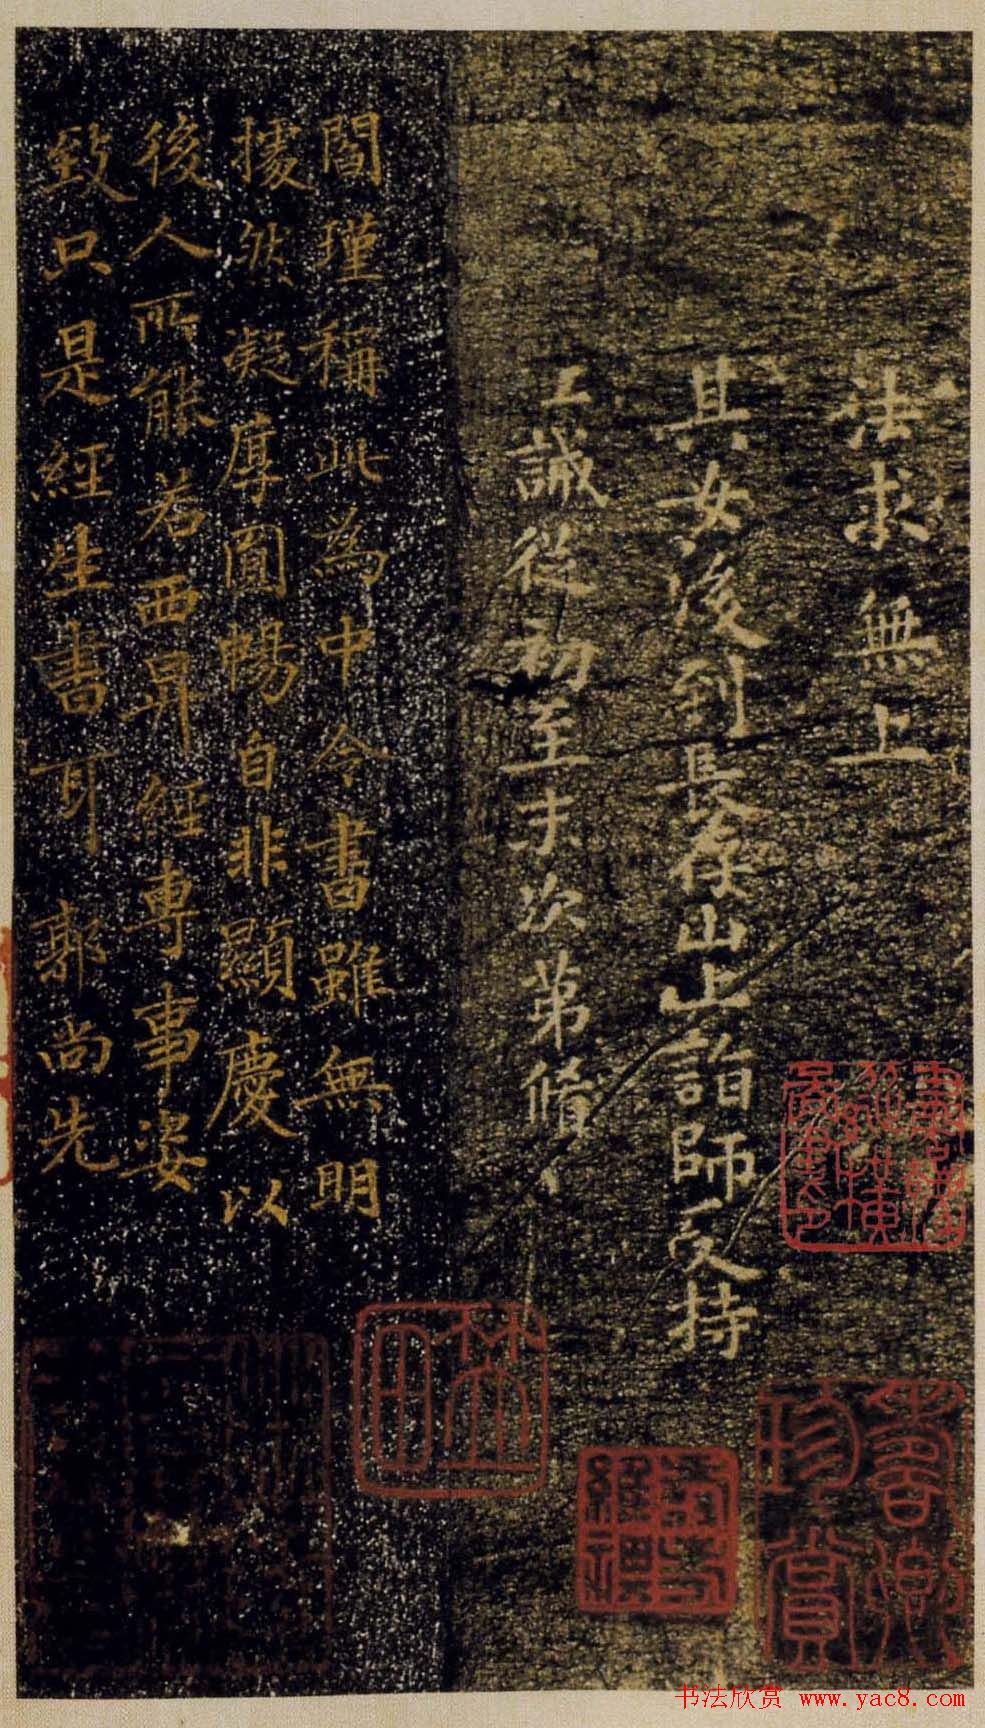 法求無上
其女後到長存山上詣師受持
誡從初至末次第脩
閻瑾稱此為中令書雖無明
據然凝厚圓暢自非顯慶以
後人所能若西昇經專事姿
致只是經生書耳郭尚先
珍賞
书法欣赏 www.yac8.com